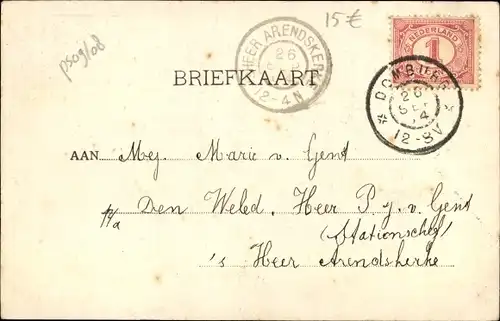 15 €
psog/08
'S HEER ARENDSKERKE
26
SEP
12-4N
NEDERLAND
1
DOMBURG
26
SEP
04
12-8V
BRIEFKAART
AAN Mej. Marie v. Gent
p/a Den Weled. Heer P. J. v. Gent
(Stationschef)
's Heer Arendskerke